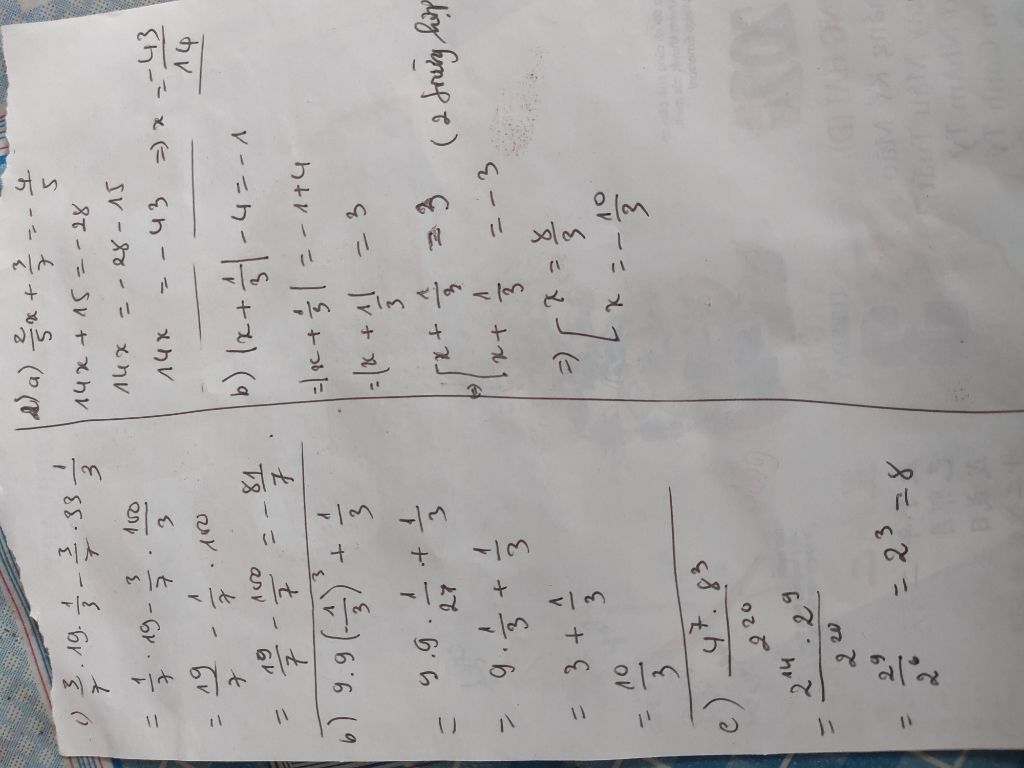 c) 3/7 . 19 . 1/3 - 3/7 . 33 1/3
= 1/7 . 19 - 3/7 . 100/3
= 19/7 - 1/7 . 100
= 19/7 - 100/7 = - 81/7 .
b) 9.9 (-1/3)³ + 1/3
= 9.9 . 1/27 . + 1/3
= 9 . 1/3 + 1/3
= 3 + 1/3
= 10/3
c) 4⁷ . 8³ / 2²⁰
= 2¹⁴ . 2⁹ / 2²⁰
= 2⁹/2⁶ = 2³ = 8
2) a) 2/5 x + 3/7 = - 4/5
14x + 15 = - 28
14x = - 28 - 15
14x = - 43 => x = - 43/14
b) |x + 1/3| - 4 = - 1
= |x + 1/3| = - 1 + 4
= |x + 1/3| = 3
⇔ [ x + 1/3 = 3 (2 trường hợp
[ x + 1/3 = - 3
=> [ x = 8/3
[ x = - 10/3